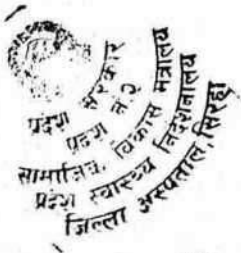 प्रदेश सरकार
प्रदेश नं. २
सामाजिक विकास मंत्रालय
प्रदेश स्वास्थ्य निर्देशनालय
जिल्ला अस्पताल, सिरहा